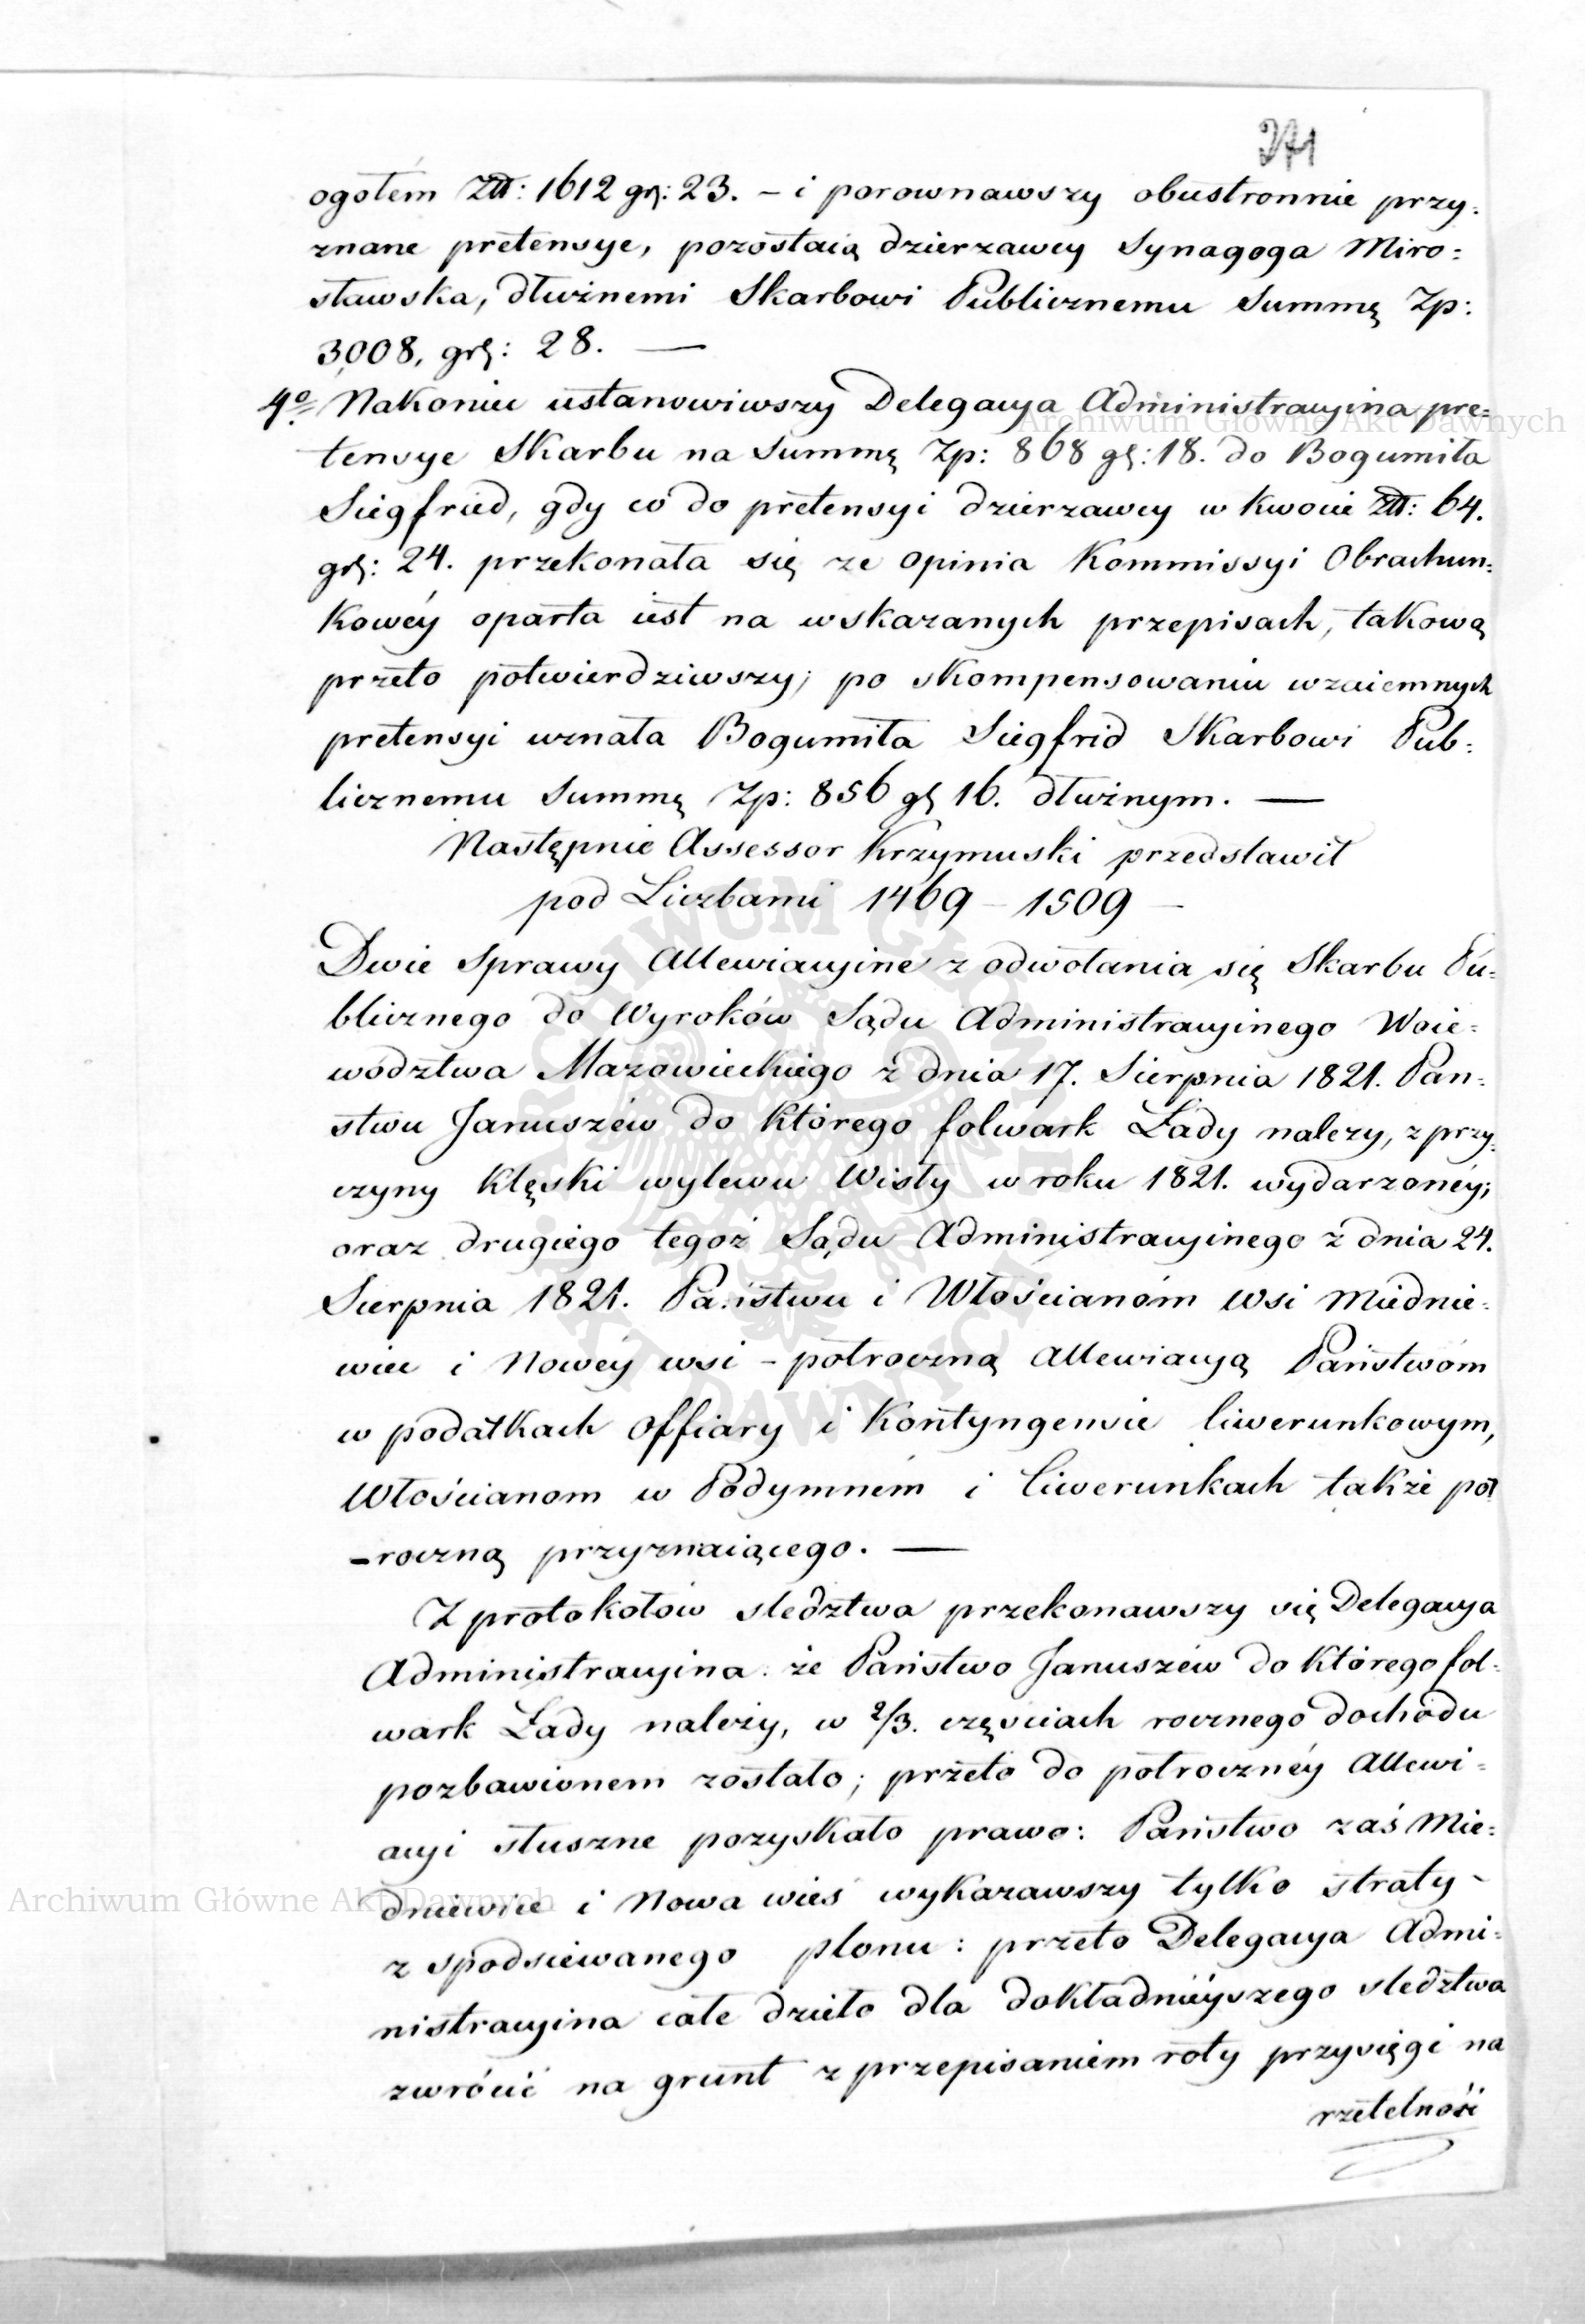 271
ogołem Złł: 1612 gr: 23. – i porownawszy obustronnie przy:
znane pretensye, pozostaią dzierzawcy Synagoga Miro:
sławska, dłużnemi Skarbowi Publicznemu Summę Zp:
3,008, gr: 28. —
4o Nakoniec ustanowiwszy Delegacya Administracyina pre:
tensye Skarbu na Summę Zp: 868 gr: 18. do Bogumiła
Siegfried, gdy co do pretensyi dzierzawcy w kwocie Złł: 64.
gr: 24. przekonała się ze opinia Kommissyi Obrachun:
kowéy oparta iest na wskazanych przepisach, takową
przeto potwierdziwszy; po skompensowaniu wzaiemnych
pretensyi uznała Bogumiła Siegfrid Skarbowi Pub:
licznemu Summę Zp: 856 gr 16. dłużnym. —
Następnie Assessor Krzymuski przedstawił
pod Liczbami 1469 – 1509 –
Dwie Sprawy Allewiacyine z odwołania się Skarbu Pu:
blicznego do Wyroków Sądu Administracyinego Woie:
wództwa Mazowieckiego z dnia 17. Sierpnia 1821. Pań:
stwu Januszew do którego folwark Łady nalezy, z przy:
czyny Klęski wylewu Wisły w roku 1821. wydarzonéy;
oraz drugiego tegoż Sądu Administracyinego z dnia 24.
Sierpnia 1821. Państwu i Włościanóm wsi Miednie:
wice i Nowéy wsi – połroczną Allewiacyą Państwóm
w podatkach Offiary i Kontyngensie liwerunkowym,
Włościanom w Podymném i liwerunkach także poł
–roczną przyznaiącego. —
Z protokołów sledztwa przekonawszy się Delegacya
Administracyina: że Państwo Januszew do którego fol:
wark Łady należy, w 2/3. częściach rocznego dochodu
pozbawionem zostało; przeto do półrocznéy Allewi:
acyi słuszne pozyskało prawo: Państwo zaś Mie:
dniewice i Nowa wieś wykazawszy tylko straty –
z spodsiewanego plonu: przeto Delegacya Admi:
nistracyina całe dzieło dla dokładnieyszego sledztwa
zwrócić na grunt z przepisaniem roty przysięgi na
rzetelność
Archiwum Główne Akt Dawnych
Archiwum Główne Akt Dawnych
ARCHIWUM GŁÓWNE AKT DAWNYCH